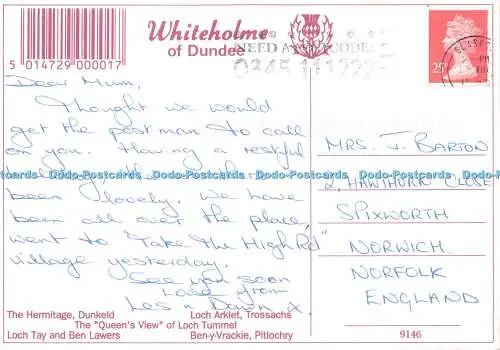 Whiteholme
of Dundee
5 014729 000017
NEED A POSTCODE
0345 111222
25
GLASGOW
Dear Mum,
Thought we would
get the postman to call
on you. Having a restful
been lovely. We have
been all over the place,
went to "Take the High Rd"
village yesterday.
See you soon
Love from
Les n Dawn x
MRS. J. BARTON
2, HAWTHORN CLOSE
SPIXWORTH
NORWICH.
NORFOLK
ENGLAND
Dodo-Postcards Dodo-Postcards Dodo-Postcards Dodo-Postcards
The Hermitage, Dunkeld Loch Arklet, Trossachs
The "Queen's View" of Loch Tummel
Loch Tay and Ben Lawers Ben-y-Vrackie, Pitlochry
9146